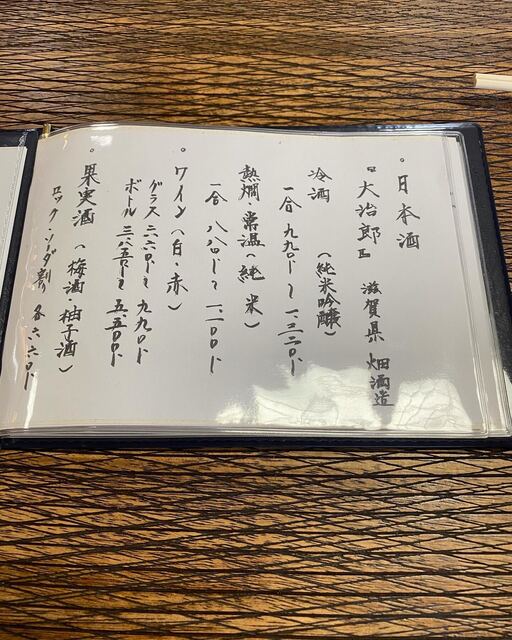 ・日本酒
『大治郎』 滋賀県 畑酒造
冷酒 (純米吟醸)
一合 九九〇.-〜一、三二〇.-
熱燗・常温(純米)
一合 八八〇.-〜一、一〇〇.-
・ワイン(白・赤)
グラス 六六〇.-〜九九〇.-
ボトル 三、八五〇.-〜五、五〇〇.-
・果実酒(梅酒・柚子酒)
ロック・ソーダ割 各六六〇.-